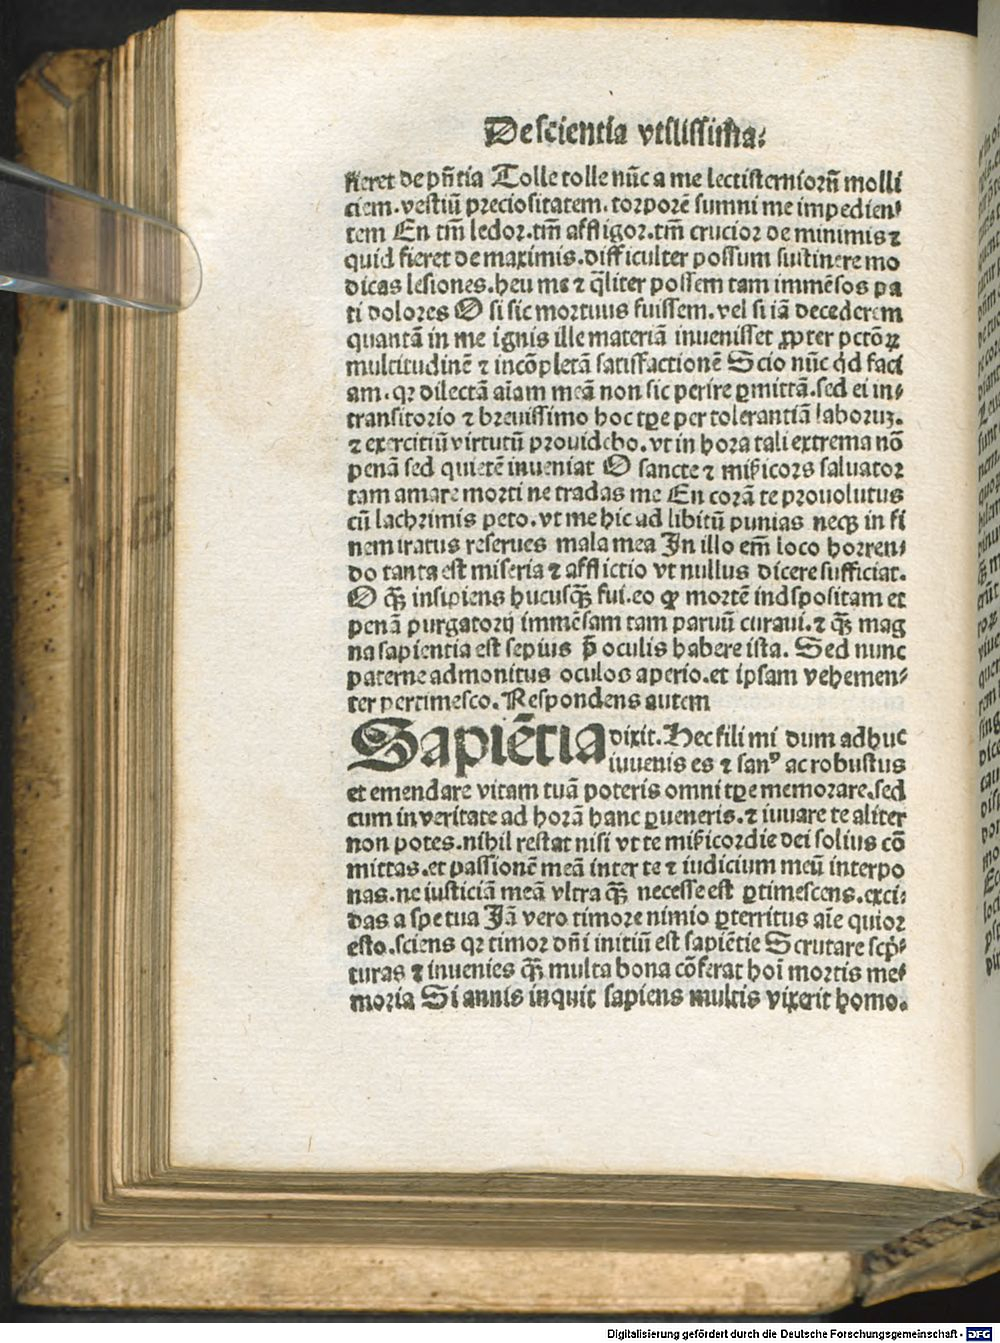 De scientia vtilissima.
fieret de pn̄tia Tolle tolle nūc a me lectisterniorū molli
ciem. vestiū preciositatem. torporē sumni me impedien⸗
tem En tm̄ ledor. tm̄ affligor. tm̄ crucior de minimis ⁊
quid fieret de maximis. difficulter possum sustinere mo
dicas lesiones. heu me ⁊ q̄liter possem tam immēsos pa
ti dolores O si sic mortuus fuissem. vel si iā decederem
quantā in me ignis ille materiā inuenisset ꝓpter pctōꝝ
multitudinē ⁊ incōpletā satisfactionē Scio nūc qd faci
am. qꝛ dilectā aīam meā non sic perire ꝑmittā. sed ei in⸗
transitorio ⁊ breuissimo hoc tꝑe per tolerantiā laboruꝫ.
⁊ exercitiū virtutū prouidebo. vt in hora tali extrema nō
penā sed quietē inueniat O sancte ⁊ mīcors saluator
tam amare morti ne tradas me En corā te prouolutus
cū lachrimis peto. vt me hic ad libitū punias neqꝫ in fi
nem iratus reserues mala mea In illo em̄ loco horren⸗
do tanta est miseria ⁊ afflictio vt nullus dicere sufficiat.
O qꝫ̄ insipiens hucusqꝫ̄ fui. eo ꝙ mortē indspositam et
penā purgatorij immēsam tam paruū curaui. ⁊ qꝫ̄ mag
na sapientia est sepius p̄ oculis habere ista. Sed nunc
paterne admonitus oculos aperio. et ipsam vehemen⸗
ter pertimesco. Respondens autem
Sapiētia dixit. Hec fili mi dum adhuc
iuuenis es ⁊ sanꝰ ac robustus
et emendare vitam tuā poteris omni tꝑe memorare. sed
cum in veritate ad horā hanc ꝑueneris. ⁊ iuuare te aliter
non potes. nihil restat nisi vt te mīcordie dei solius cō
mittas. et passionē meā inter te ⁊ iudicium meū interpo
nas. ne iusticiā meā vltra qꝫ̄ necesse est ꝑtimescens. exci⸗
das a spe tua Iā vero timore nimio ꝑterritus aīe quior
esto. sciens qꝛ timor dn̄i initiū est sapiētie Scrutare scp̄⸗
turas ⁊ inuenies qꝫ̄ multa bona cōferat hoī mortis me⸗
moria Si annis inquit sapiens multis vixerit homo.
Digitalisierung gefördert durch die Deutsche Forschungsgemeinschaft - DFG